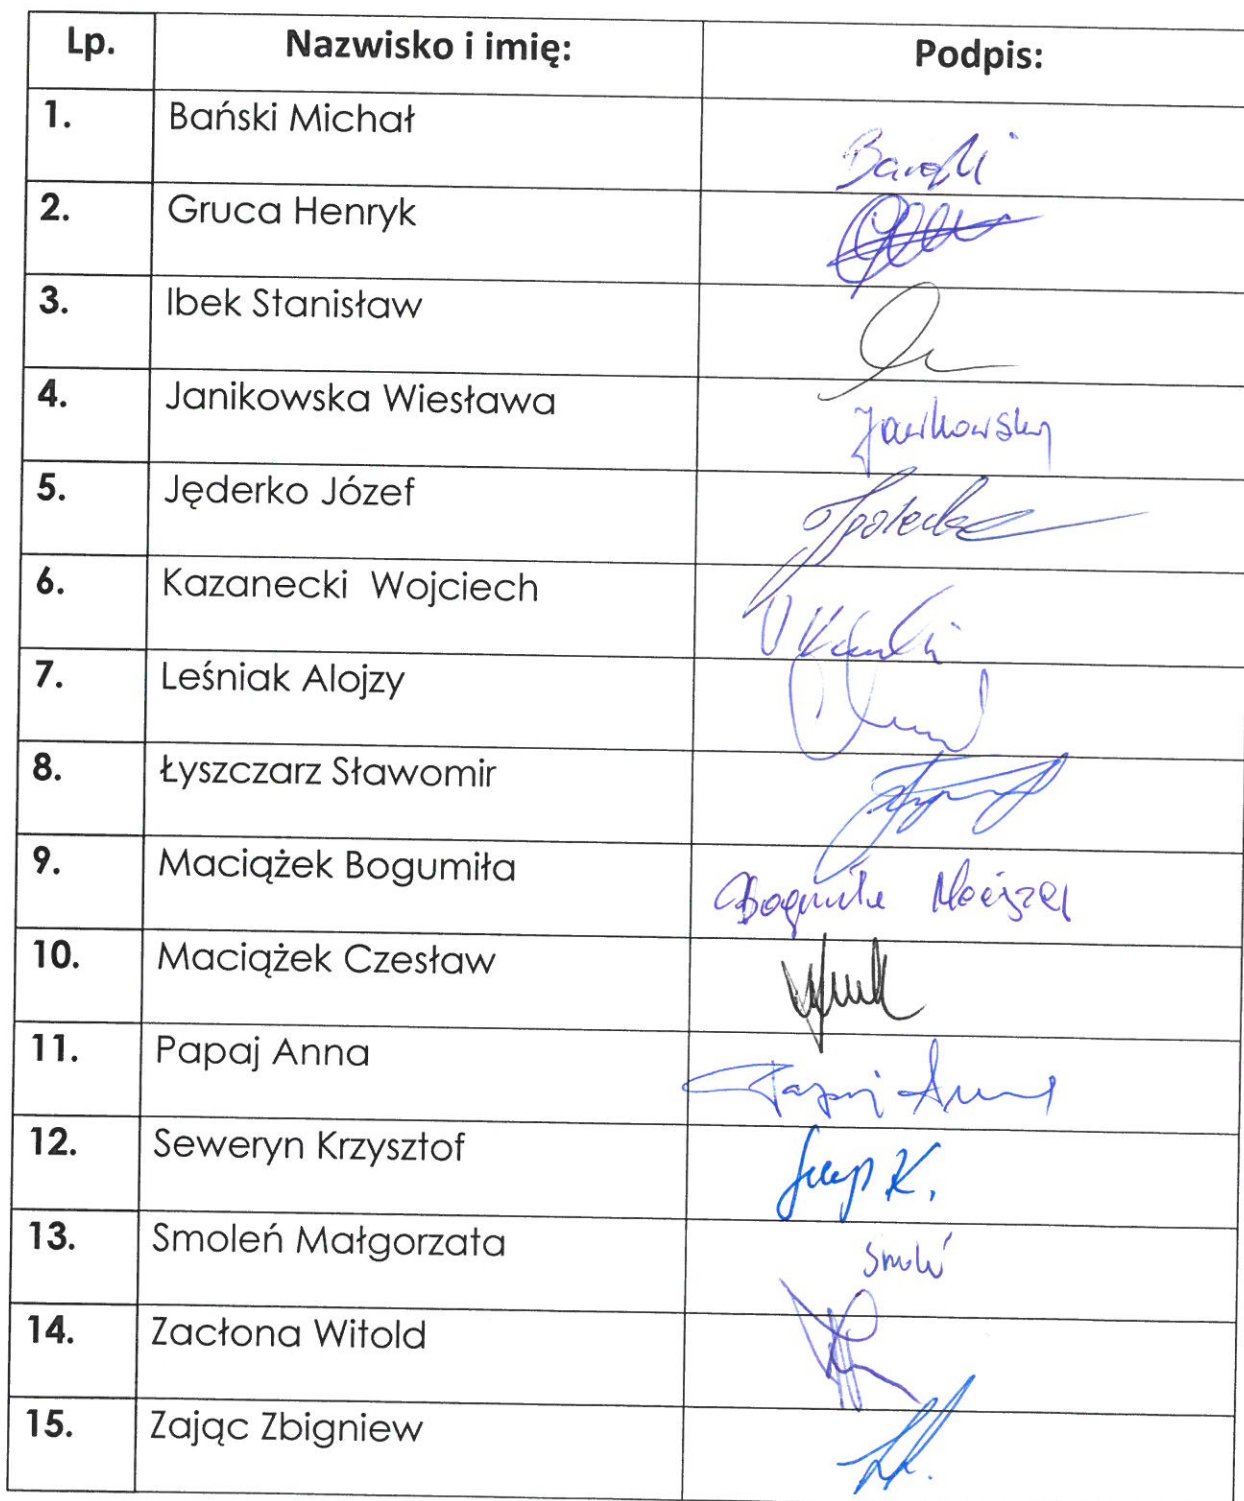 Lp. Nazwisko i imię: Podpis:
1. Bański Michał Bański
2. Gruca Henryk
3. Ibek Stanisław
4. Janikowska Wiesława Janikowska
5. Jęderko Józef
6. Kazanecki Wojciech
7. Leśniak Alojzy
8. Łyszczarz Sławomir
9. Maciążek Bogumiła Bogumiła Maciążek
10. Maciążek Czesław
11. Papaj Anna Papaj Anna
12. Seweryn Krzysztof K.
13. Smoleń Małgorzata Smoleń
14. Zacłona Witold
15. Zając Zbigniew